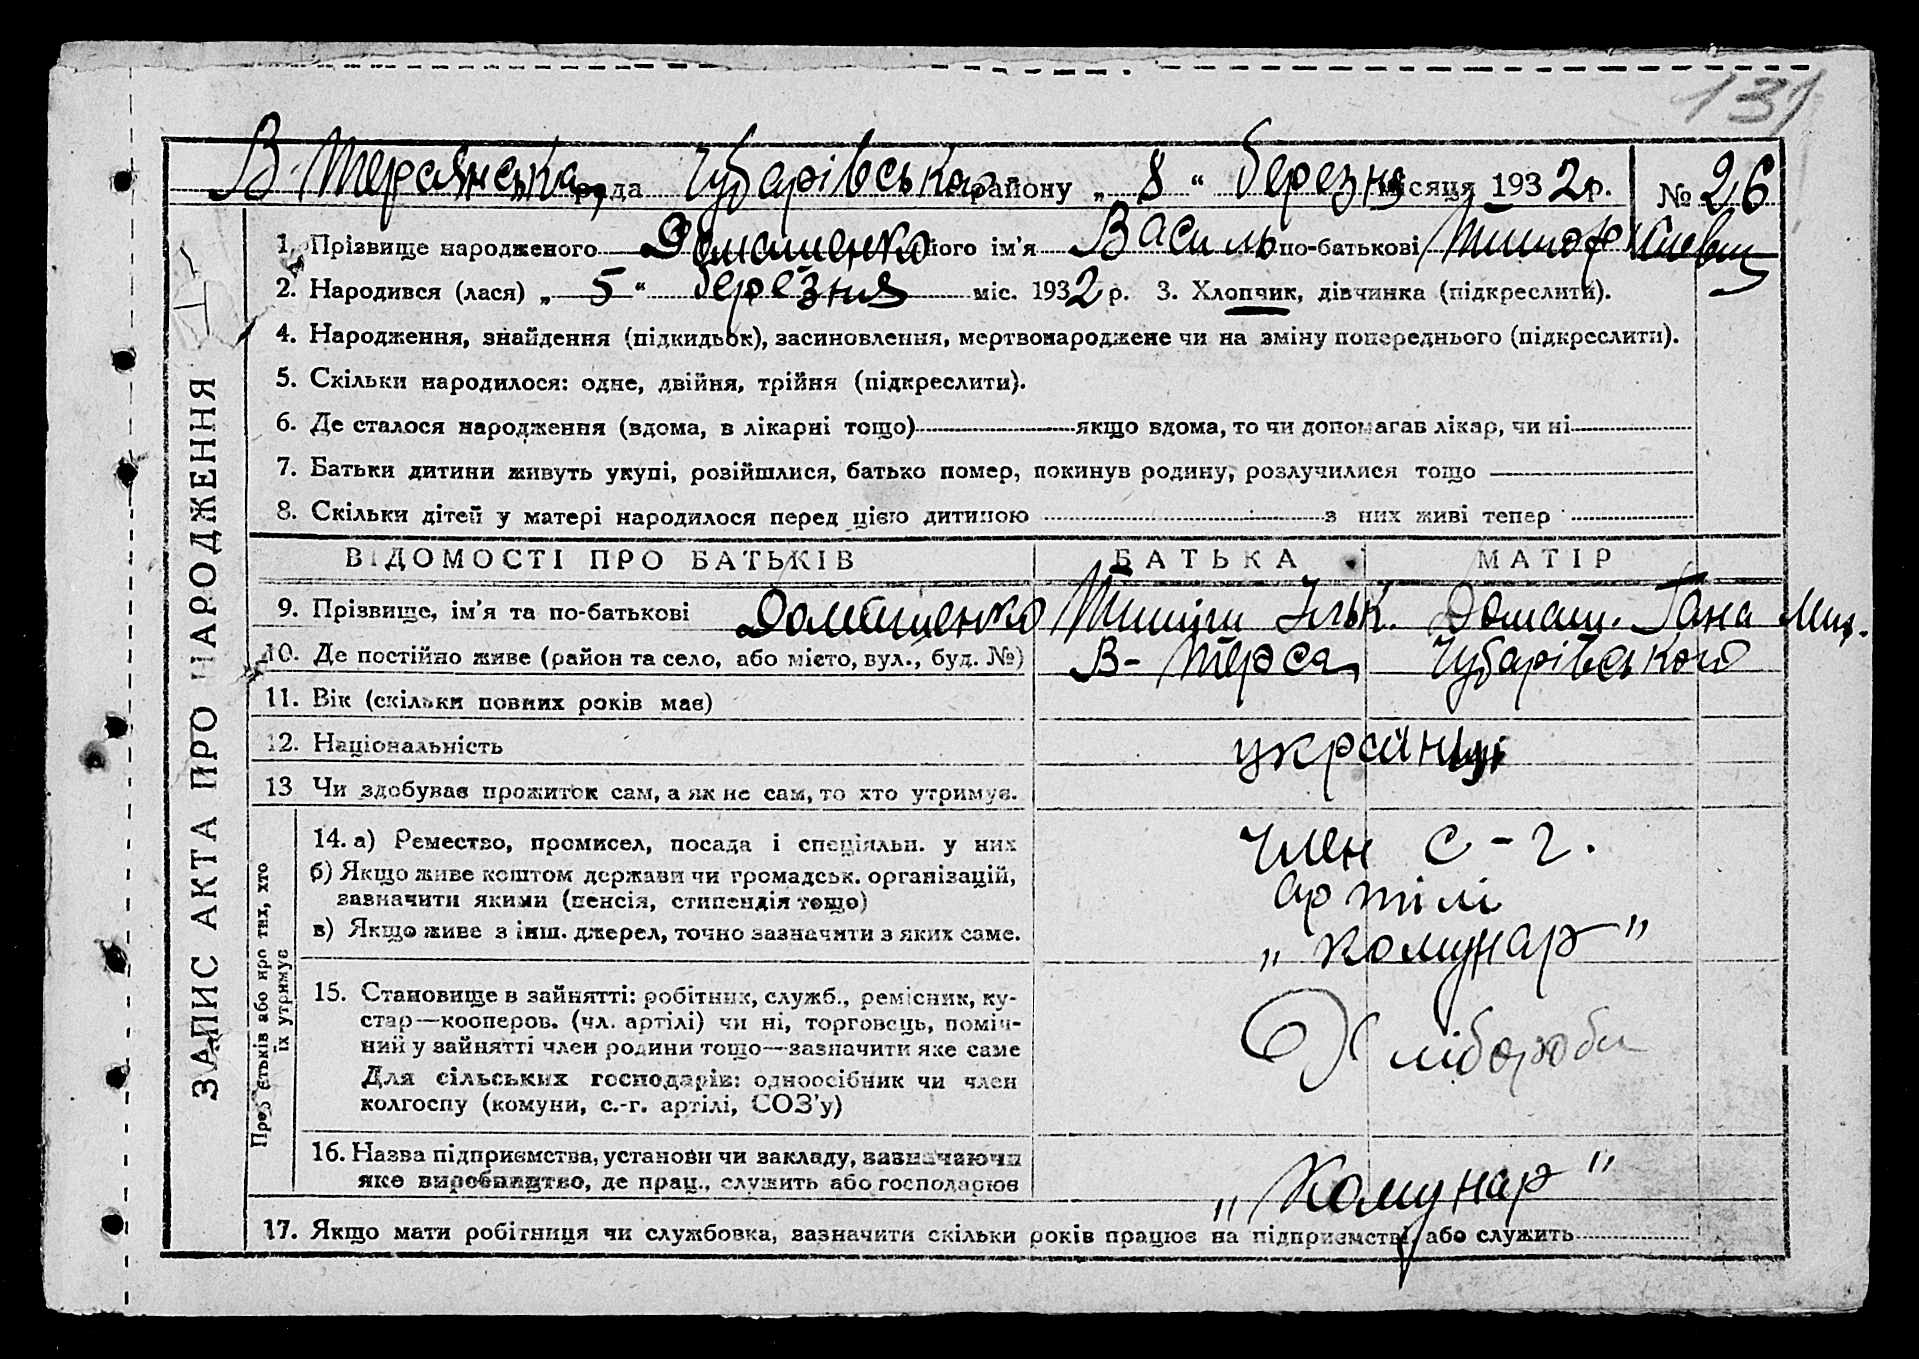 131
В-Терсянська рада Чубарівського району „ 8 “ березня місяця 1932 р. № 26
1. Прізвище народженого Домашенко його ім'я Василь по-батькові
2. Народився (лася) „ 5 “ березня міс. 1932 р. 3. Хлопчик, дівчинка (підкреслити).
4. Народження, знайдення (підкидьок), засиновлення, мертвонароджене чи на зміну попереднього (підкреслити).
5. Скільки народилося: одне, двійня, трійня (підкреслити).
6. Де сталося народження (вдома, в лікарні тощо) якщо вдома, то чи допомагав лікар, чи ні
7. Батьки дитини живуть укупі, розійшлися, батько помер, покинув родину, розлучилися тощо
8. Скільки дітей у матері народилося перед цією дитиною з них живі тепер
ВІДОМОСТІ ПРО БАТЬКІВ БАТЬКА МАТІР
9. Прізвище, ім'я та по-батькові Домашенко Домаш. Гана
10. Де постійно живе (район та село, або місто, вул., буд. №) В-Терса Чубарівського
11. Вік (скільки повних років має)
12. Національність українці
13 Чи здобуває прожиток сам, а як не сам, то хто утримує.
14. а) Ремество, промисел, посада і спеціяльн. у них член с-г.
б) Якщо живе коштом держави чи громадськ. організацій, артілі
зазначити якими (пенсія, стипендія тощо)
в) Якщо живе з інш. джерел, точно зазначити з яких саме. „Комунар”
15. Становище в зайнятті: робітник, служб., ремісник, ку-
стар—кооперов. (чл. артілі) чи ні, торговець, поміч-
ний у зайнятті член родини тощо—зазначити яке саме Хлібороби
Для сільських господарів: одноосібник чи член
колгоспу (комуни, с.-г. артілі, СОЗ'у)
16. Назва підприємства, установи чи закладу, зазначаючи
яке виробництво, де прац., служить або господарює „Комунар”
17. Якщо мати робітниця чи службовка, зазначити скільки років працює на підприємстві, або служить
ЗАПИС АКТА ПРО НАРОДЖЕННЯ
Про батьків або про тих, хто
їх утримує